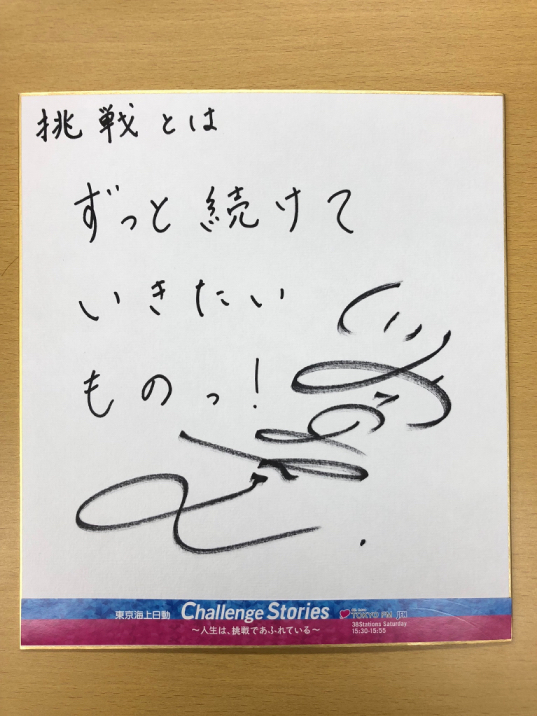 挑戦とは
ずっと続けて
いきたい
ものっ!
東京海上日動 Challenge Stories
〜人生は、挑戦であふれている〜
TOKYO FM
38Stations Saturday
15:30-15:55